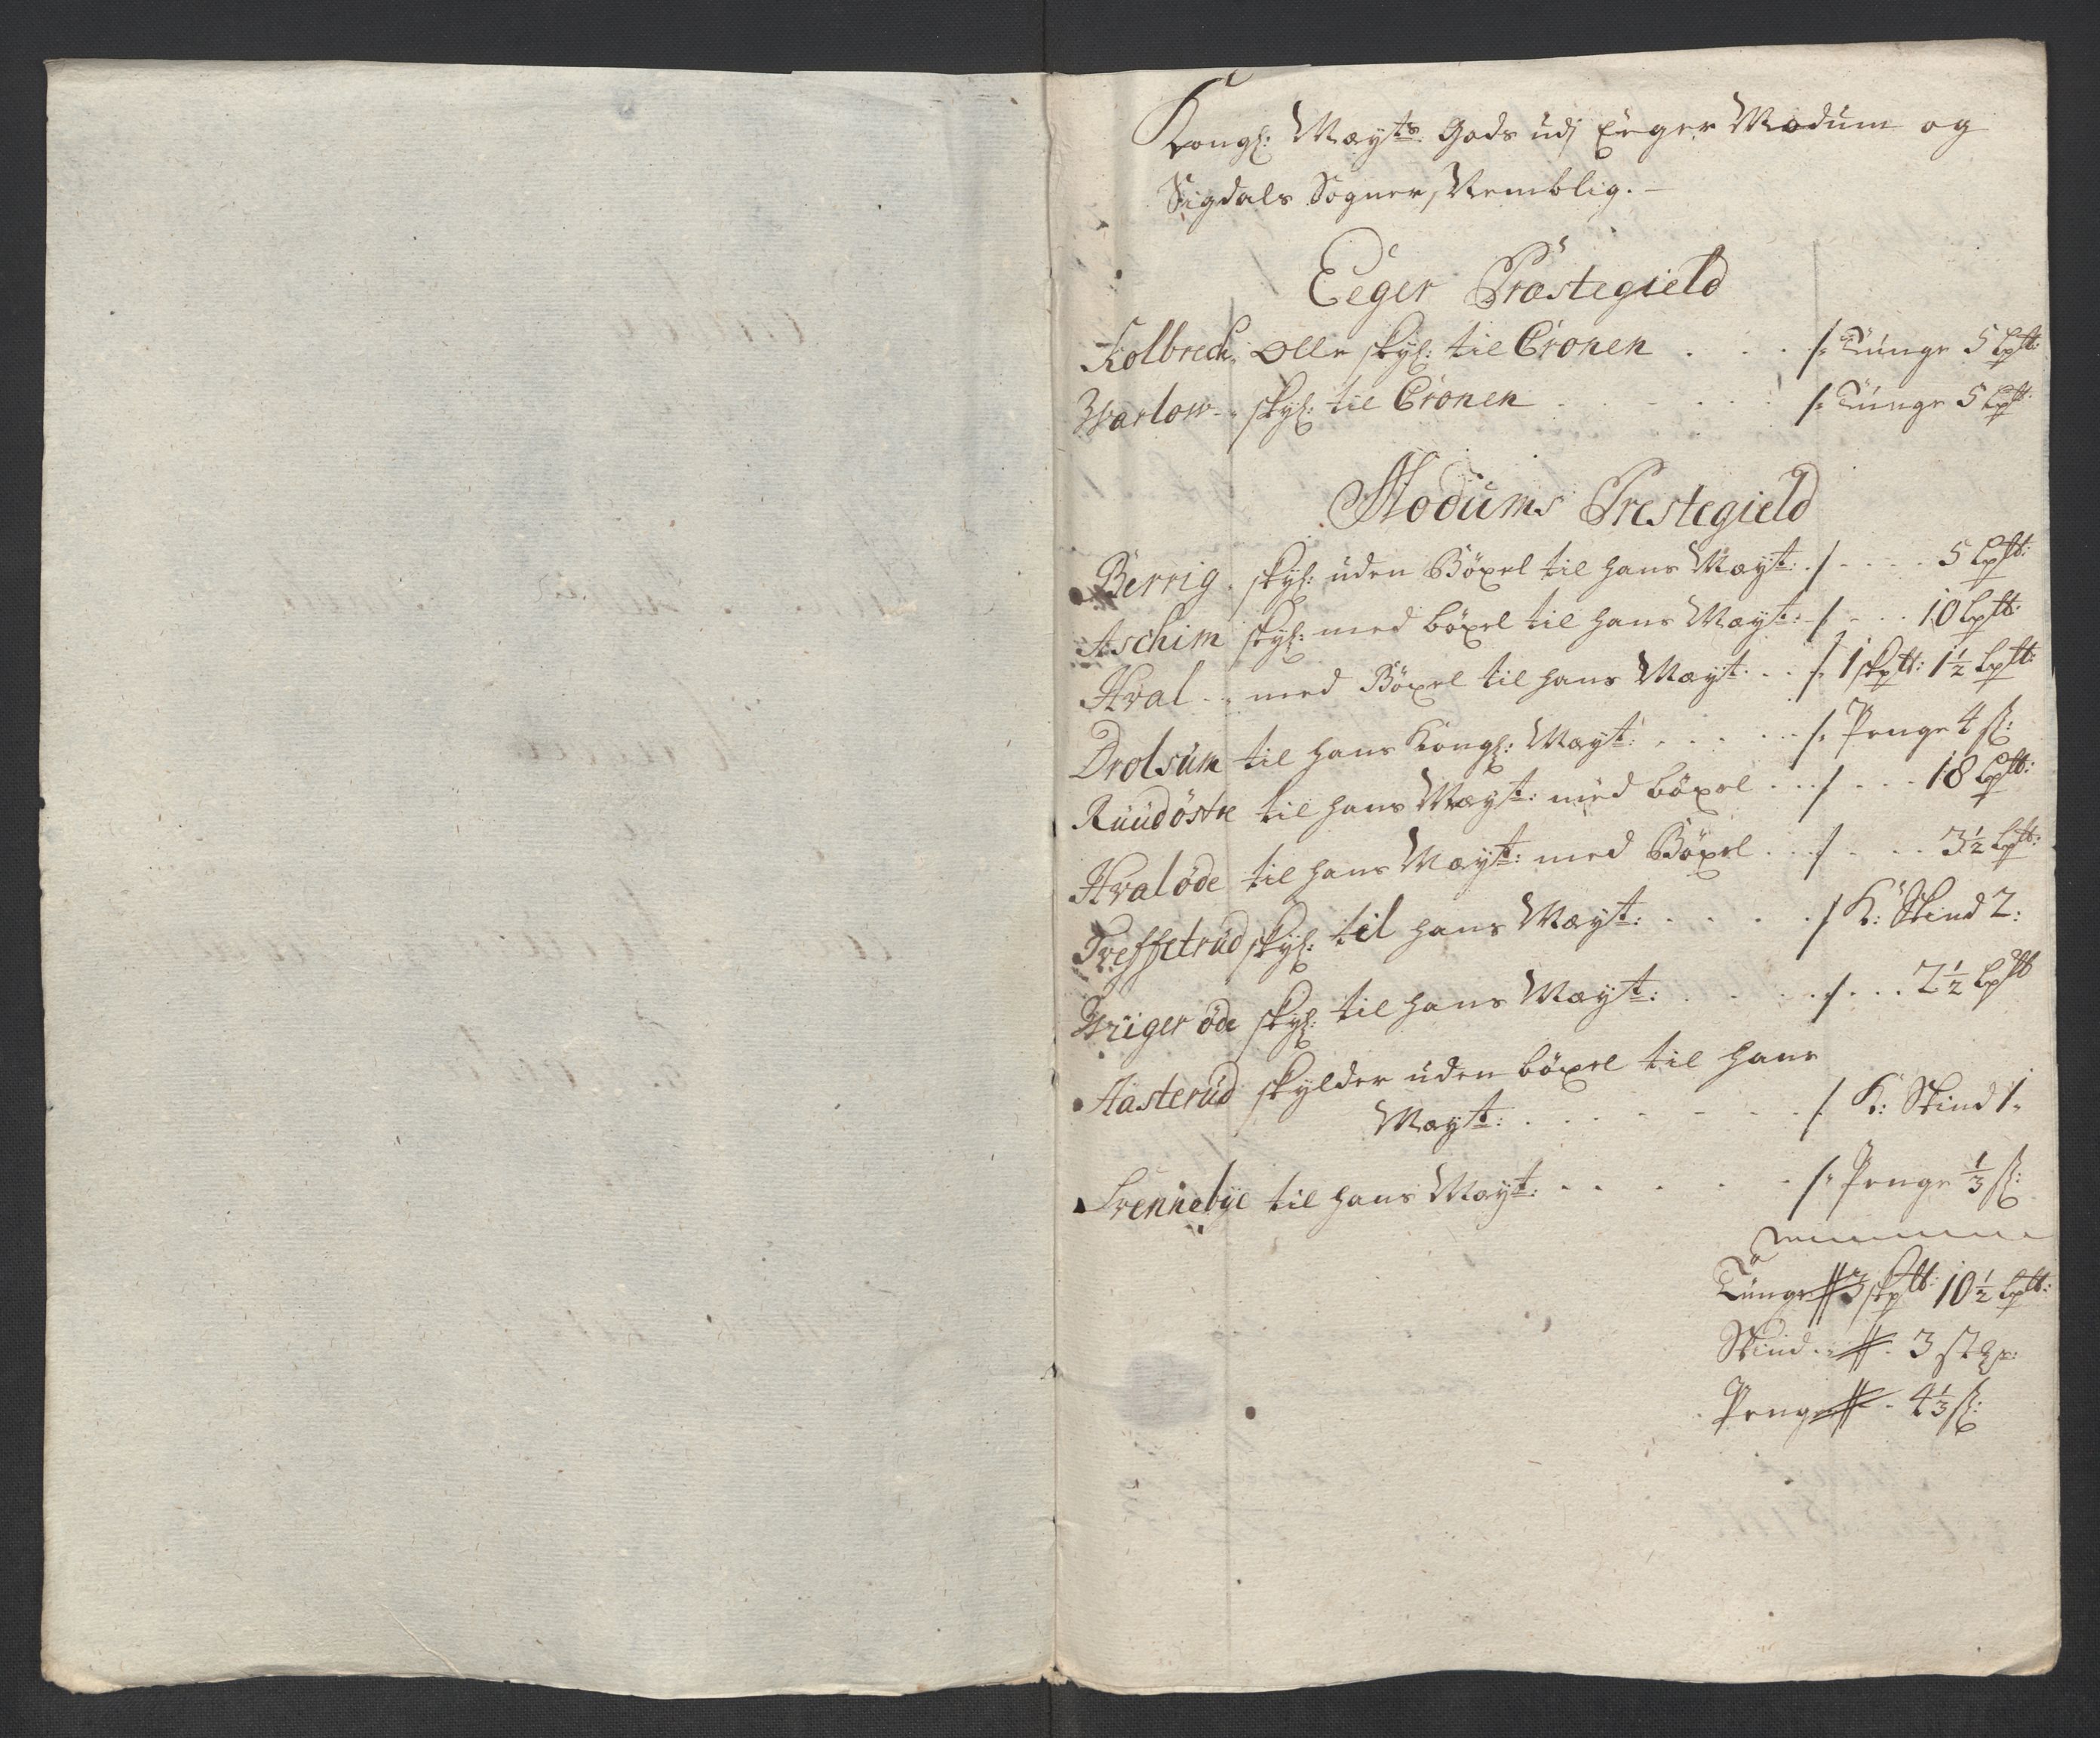 Kongl: Mayts Gods udj Eeger Modum og
Sigdals Sogner, Nemblig.
Eeger Præstegield
Kolbrech, Olle skyl: til Cronen . . . /: Tunge 5 Lpd:
Warlow - skyl: til Cronen . . . /: Tunge 5 Lpd:
Modums Prestegield
Berrig . skyl: uden Böxel til hans Mayt: . / . . . 5 Lpd:
Aschim skyl: med böxel til hans Mayt: / . . . 10 Lpd:
Hval . . med Böxel til hans Mayt: . . /: 1 skpd: 1½ Lpd:
Drolsum til hans Kongl: Mayt: . . . /: Penge 4 ß:
Ruudöstre til hans Mayt: med böxel . . / . . . 18 Lpd:
Hvaløde til hans Mayt: med Böxel . . / . . . 3½ Lpd:
Treffetrud skyl: til hans Mayt: . . . / K: Skind 2:
øde skyl: til hans Mayt: . . . / . . . 2½ Lpd
Aasterud skylder uden böxel til hans
Mayt: . . . /. K: Skind 1.
Svennebye til hans Mayt: . . . /: Penge ⅓ ß:
Tunge // 3 skpd: 10½ Lpd:
Skind . // . 3 
Penge // . 4⅓ ß: